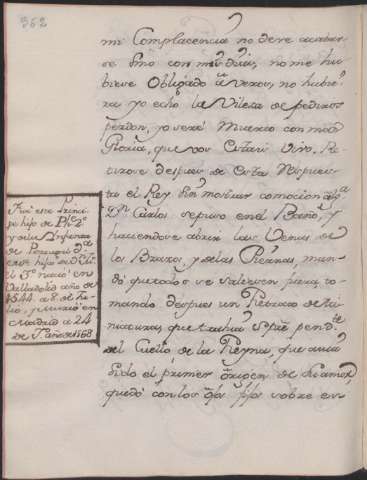 362
mi Complacencia no deve acabar
se sino con mis dias, no me hu
vieve Obligado á veros, no hubie
ra yo echo la Vileza de pediros
perdon, yo seré Muerto con mas
Gloria, que vos Estais Vivo. Re
tirose despues de Esta Respues
ta el Rey sin mostrar comocion alg.ª
Dn. Carlos se puso en el Baño, y
haciendose abrir las Venas de
los Brazos, y delas Piernas, man
dó que todos se saliesen fuera, to
mando despues un Retrato de
que trahia siempre pend.te
del Cuello de la Reyna, que avia
sido el primer Origen de su amor,
quedó con los ojos fijos sobre en
Fué este Princi
pe hijo de Phe. 2º
y de la Infanta
de Portugal Dª
hija de Dn. Jn.
el 3º nació en
Valladolid año de
1544. a 8. de Ju
lio, y murió en
Madrid a 24
de J. año de 1568